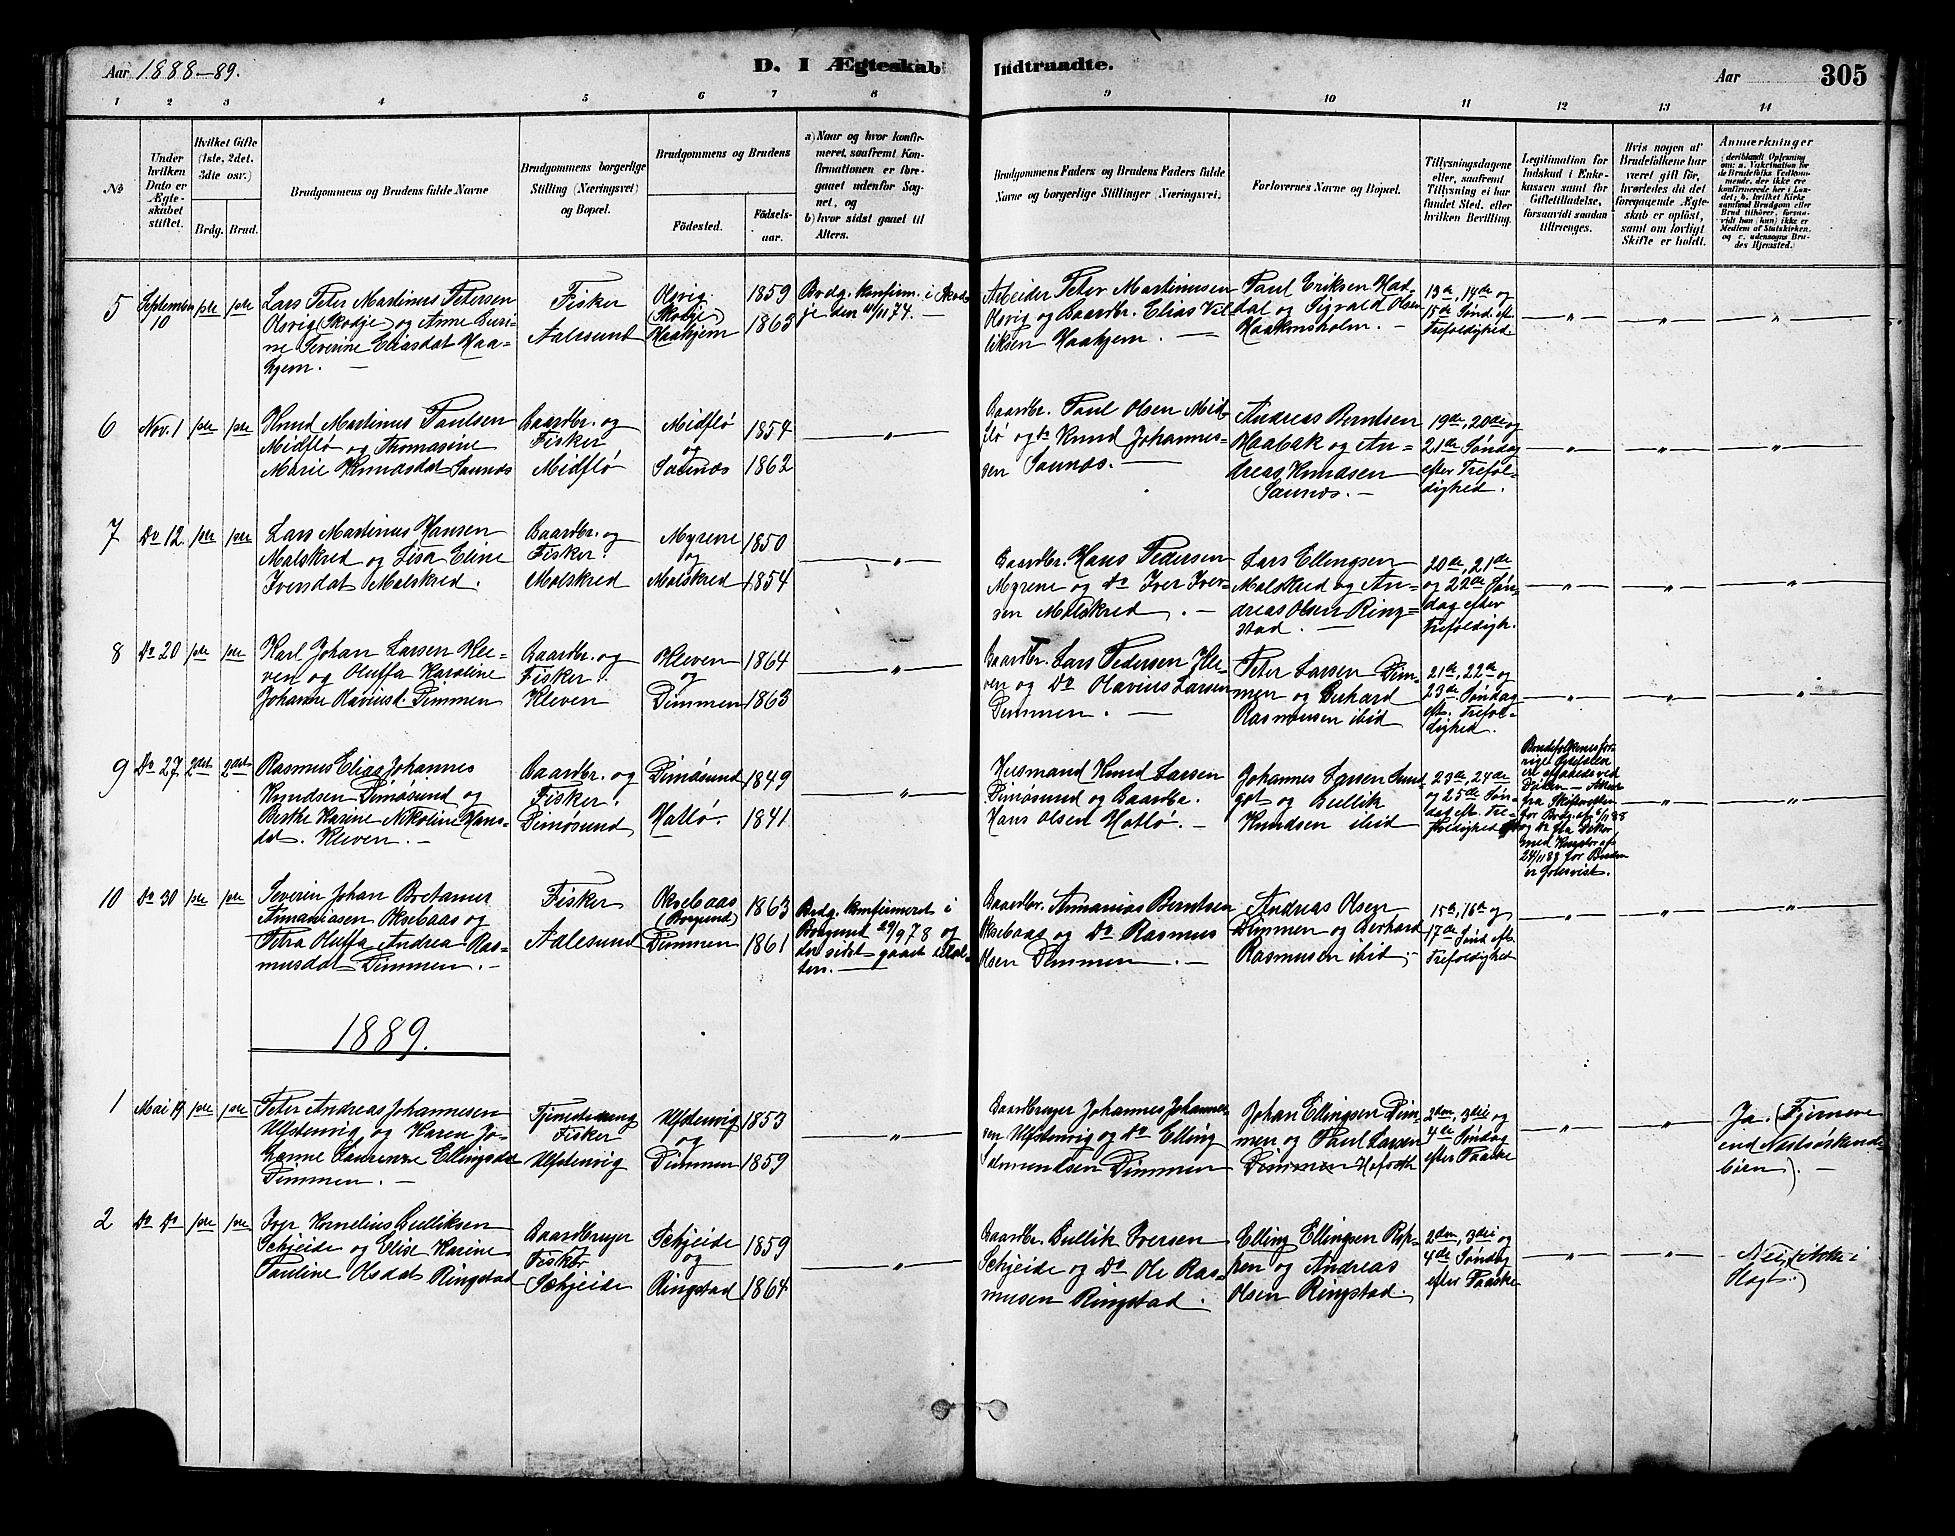 Aar 1888-89.
D. I Ægteskab Indtraadte.
Aar
305
1 2 3 4 5 6 7 8 9 10 11 12 13 14
No
Under hvilken Dato er Ægteskabet stiftet.
Hvilket Gifte (1ste, 2det, 3die osv.)
Brdg. Brud.
Brudgommens og Brudens fulde Navne
Brudgommens borgerlige Stilling (Næringsvei) og Bopæl.
Brudgommens og Brudens
Fødested.
Fødselsaar.
a) Naar og hvor konfirmeret, saafremt Konfirmationen er foregaaet udenfor Sognet, og
b) hvor sidst gaaet til Alters.
Brudgommens Faders og Brudens Faders fulde Navne og borgerlige Stillinger (Næringsvei).
Forlovernes Navne og Bopæl.
Tillysningsdagene eller, saafremt Tillysning ei har fundet Sted, efter hvilken Bevilling.
Legitimation for Indskud i Enkekassen samt for Giftetilladelse, forsaavidt saadan tiltrænges.
Hvis nogen af Brudefolkene har været gift før, hvorledes da det foregaaende Ægteskab er opløst, samt om lovligt Skifte er holdt.
Anmærkninger
5 September 10 1ste 1ste
Lars Peter Martinus Petersen
Olsvig (Skodje) og Anne Beri-
ne Severine Eliasdat Haa-
kjem. —
Fisker
Aalesund
Olsvig (Skodje) 1859
Haakjem 1863
Brdg. konfirm. i Skod-
je den 11/11 74. —
Arbeider Peter Martinusen
Olsvig og Gaardbr. Elias Vil-
liksen Haakjem. —
Paul Eriksen Had-
dal og Sigvald Olsen
Haakonsholm. —
13de, 14de og
15de Sønd. eft.
Trefoldighed
6 Nov. 1 1ste 1ste
Knud Martinus Paulsen
Midflø og Thomasine
Marie Knudsdat Saunes
Gaardbr. og
Fisker
Midflø
Midflø 1854
og
Saunes 1862
Gaardbr. Paul Olsen Mid-
flø og Do Knud Johannes-
sen Saunes. —
Andreas Berntsen
Haabak og An-
dreas Knudsen
Saunes. —
19de, 20de og
21de Søndag
efter Trefol-
dighed.
7 Do 12 1ste 1ste
Lars Martinus Hansen
Molskred og Lisa Eline
Iversdat Molskred.
Gaardbr. og
Fisker.
Molskred
Myrene 1850
og
Molskred 1854
Gaardbr. Hans Pedersen
Myrene og Do Iver Iver-
sen Molskred. —
Lars Ellingsen
Molskred og An-
dreas Olsen Ring-
stad. —
20de, 21de
og 22de Søn-
dag efter
Trefoldigh.
8 Do 20 1ste 1ste
Karl Johan Larsen Kle-
ven og Oluffa Karoline
Johanne Olaviusd. Dimmen
Gaardbr. og
Fisker.
Kleven
Kleven 1864
og
Dimmen 1863
Gaardbr. Lars Pedersen Kle-
ven og Do Olavius Larsen
Dimmen. —
Peter Larsen Dim-
men og Gerhard
Rasmussen ibid
21de, 22de og
23de Søndag
eft. Trefol-
dighed.
9 Do 27 2det 2det
Rasmus Elias Johannes
Knudsen Dimøsund og
Birthe Karine Nikoline Hans-
dat. Kleven. —
Gaardbr. og
Fisker.
Dimøsund
Dimøsund 1849
Hatlø. 1841
Husmand Knud Larsen
Dimøsund og Gaardbr.
Hans Olsen Hatlø. —
Johannes Larsen Sund-
got og Bullik
Knudsen ibid
23de, 24de
og 25de Søn-
dag eft. Tre-
foldighed
10 Do 30 1ste 1ste
Severin Johan Bertanus
Ananiasen Oksebaas og
Petra Oluffa Andrea Ras-
musdat Dimmen. —
Fisker
Aalesund
Oksebaas (Borgund) 1863
Dimmen 1861
Brdg. konfirmeret i
Borgund 29/9 78 og
der sidst gaaet til Al-
ters. —
Gaardbr. Annanias Berntsen
Oksebaas og Do Rasmus
Olsen Dimmen. —
Andreas Olsen
Dimmen og Gerhard
Rasmusen ibid. —
15de, 16de og
17de Sønd. eft.
Trefoldighed
1889.
1 Mai 19 1ste 1ste
Peter Andreas Johannesen
Ulfstenvig og Karen Jo-
hanne Laurenze Ellingsdat
Dimmen. —
Fisker
Ulfstenvig
Ulfstenvig 1853
og
Dimmen 1859
Gaardbruger Johannes Johannes-
sen Ulfstenvig og Do Elling
Edmundsen Dimmen
Johan Ellingsen Dim-
men og Paul Larsen
Dimmen
2den, 3die og
4de Søndag
efter Paaske
Ja. (Fjernere
end Næstsøskende-
børn). —
2 Do Do 1ste 1ste
Iver Kornelius Bulliksen
Schjeide og Elise Karine
Pauline Olsdat Ringstad
Gaardbruger
Fisker
Schjeide
Schjeide 1859
og
Ringstad 1864
Gaardbr. Bullik Iversen
Schjeide og Do Ole Ras-
musen Ringstad.
Elling Ellingsen
og Andreas
Olsen Ringstad.
2den, 3die og
4de Søndag
efter Paaske